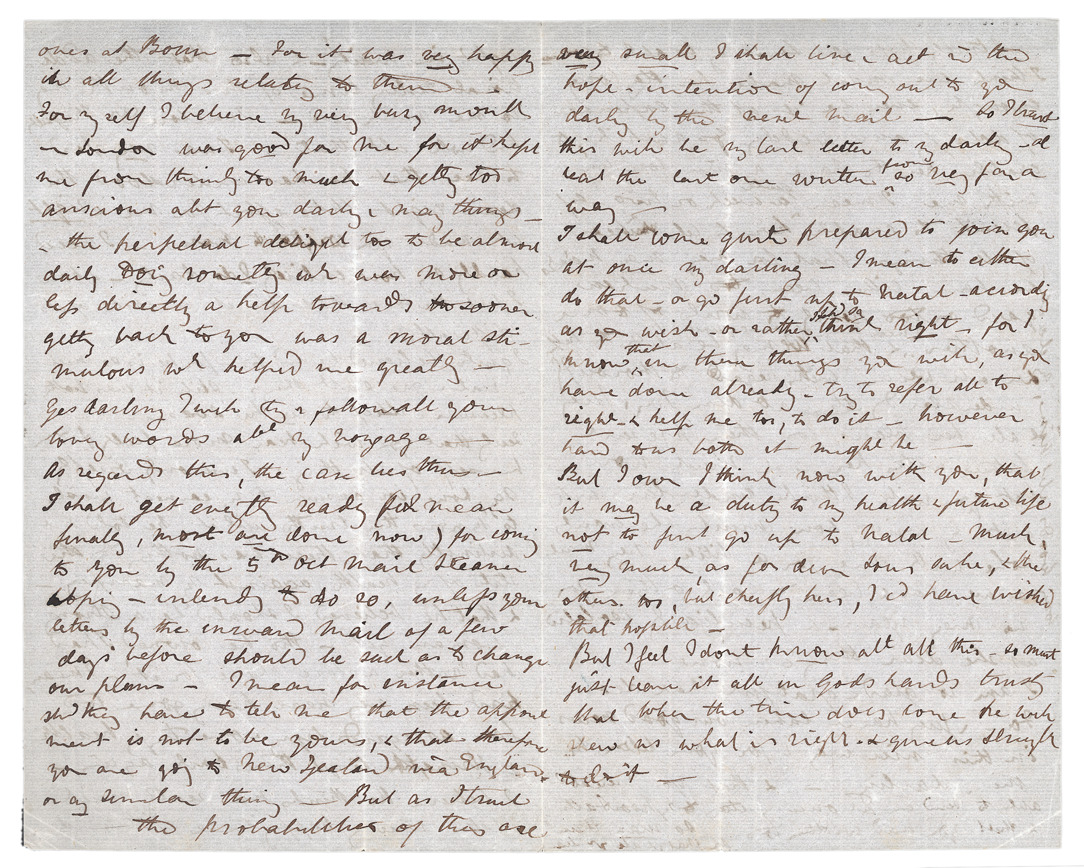 ones at Bonn — For it was very happy
in all things relating to them
For myself I believe my very busy month
in London was good for me for it kept
me from thinking too much & getting too
anxious abt you darling & many things —
& the perpetual delight too to be almost
daily doing something wh was more or
less directly a help towards the sooner
getting back to you was a moral sti-
mulous wh helped me greatly —
Yes darling I will try & follow all your
loving words abt my voyage —
As regards this, the case lies thus —
I shall get everything ready (I mean
finally, most are done now) for coming
to you by the 5th Oct mail steamer
hoping & intending to do so, unless your
letters by the inward mail of a few
days before should be such as to change
our plans — I mean for instance
shd they have to tell me that the appoint
ment is not to be yours, & that therefore
you are going to New Zealand via England,
or any similar thing — But as I trust
— the probabilities of this are
very small I shall live & act in the
hope & intention of coming out to you
darling by the next mail — So I trust
this will be my last letter to my darling — at
least the last one written from so very far a
way —
I shall come quite prepared to join you
at once my darling — I mean to either
do that — or go first up to Natal — according
as you wish — or rather shd you think right — for I
know that in these things you will, as you
have done already — try to refer all to
right — & help me too, to do it — however
hard to us both it might be —
But I own I think now with you, that
it may be a duty to my health & future life
not to first go up to Natal — Much,
very much, as for dear sake, & the
others too, but chiefly hers, I'd have wished
that possible —
But I feel I dont know abt all this — so must
just leave it all in Gods hands trusting
that when the time does come He will
shew us what is right — & give us strength
to do it —